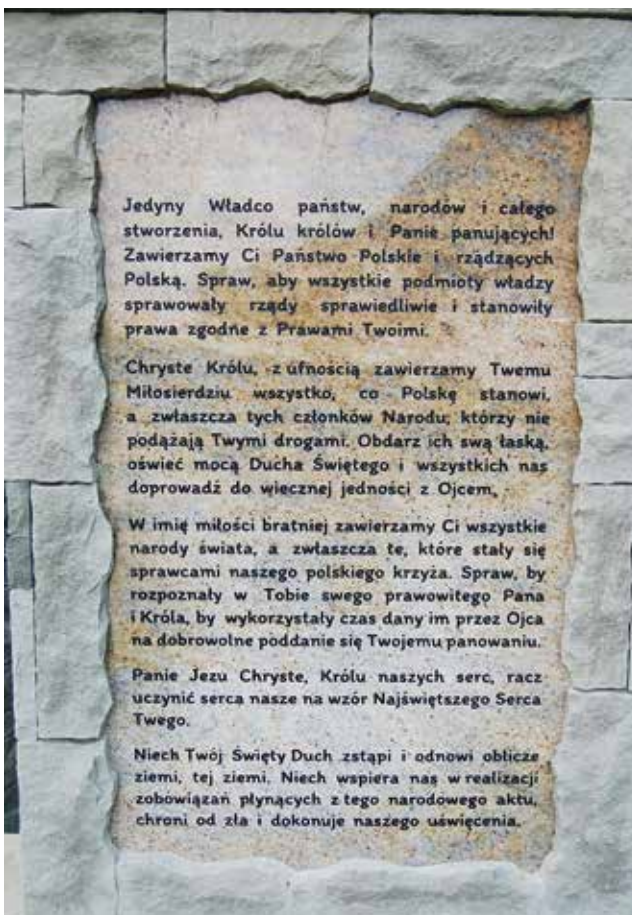 Jedyny Władco państw, narodów i całego
stworzenia, Królu królów i Panie panujących!
Zawierzamy Ci Państwo Polskie i rządzących
Polską. Spraw, aby wszystkie podmioty władzy
sprawowały rządy sprawiedliwie i stanowiły
prawa zgodne z Prawami Twoimi.
Chryste Królu, z ufnością zawierzamy Twemu
Miłosierdziu wszystko, co Polskę stanowi,
a zwłaszcza tych członków Narodu, którzy nie
podążają Twymi drogami. Obdarz ich swą łaską,
oświeć mocą Ducha Świętego i wszystkich nas
doprowadź do wiecznej jedności z Ojcem.
W imię miłości bratniej zawierzamy Ci wszystkie
narody świata, a zwłaszcza te, które stały się
sprawcami naszego polskiego krzyża. Spraw, by
rozpoznały w Tobie swego prawowitego Pana
i Króla, by wykorzystały czas dany im przez Ojca
na dobrowolne poddanie się Twojemu panowaniu.
Panie Jezu Chryste, Królu naszych serc, racz
uczynić serca nasze na wzór Najświętszego Serca
Twego.
Niech Twój Święty Duch zstąpi i odnowi oblicze
ziemi, tej ziemi. Niech wspiera nas w realizacji
zobowiązań płynących z tego narodowego aktu,
chroni od zła i dokonuje naszego uświęcenia.